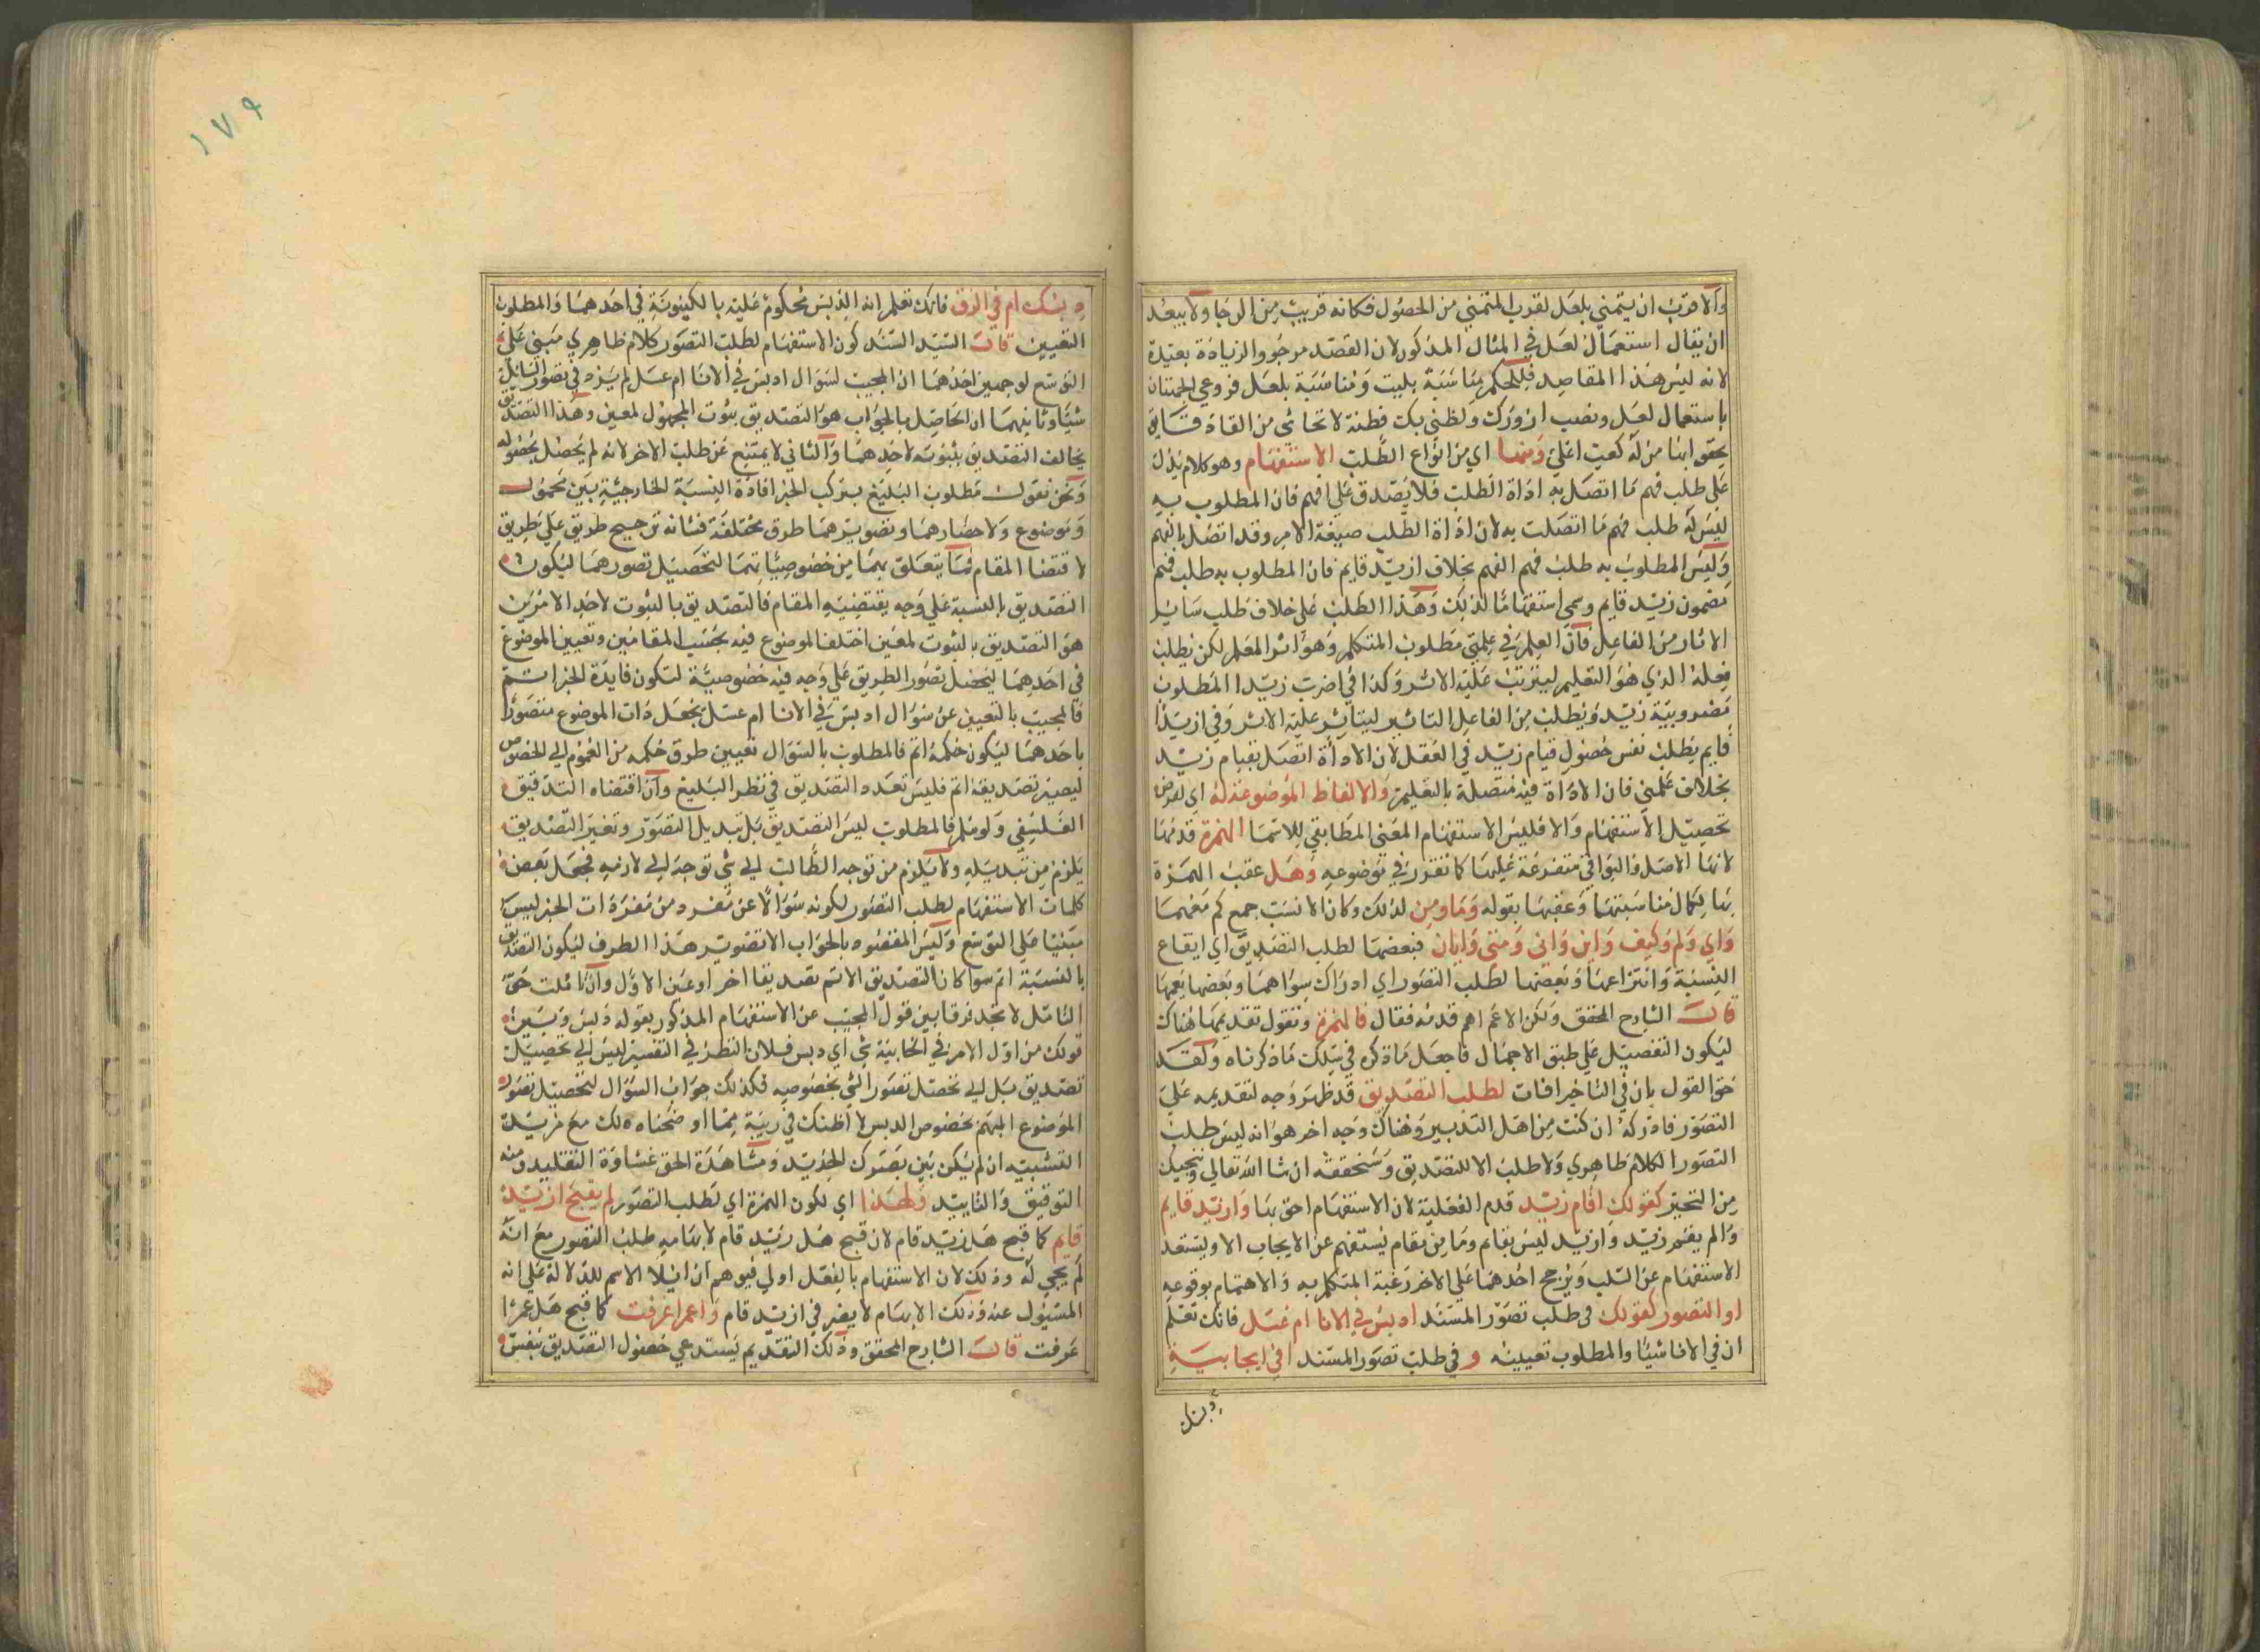 والاقرب ان يتمني بلعل لقرب المتمني من الحصول فكانه قريب من الرجا ولا يبعد
ان يقال استعمال لعل في المثال المذكور لان القصد مرجو والزيادة بعيدة
لانه ليس هذا المقاصد فللحكم مناسبة بليت ومناسبة بلعل فروعي الجهتان
باستعمال لعل ونصب ازورك ولظني بك فطنة لا تحاشي من القاء
يحقق ابنا من له كعب اعلي ومنها اي من انواع الطلب الاستفهام وهو كلام يدل
علي طلب فهم ما اتصل به اداة الطلب فلا يصدق علي افهم فان المطلوب به
ليس له طلب فهم ما اتصلت به لان اداة الطلب صيغة الامر وقد اتصل بالفهم
وليس المطلوب به طلب فهم الفهم بخلاف ازيد قايم فان المطلوب به طلب فهم
مضمون زيد قايم وسمي استفهاما لذلك وهذا الطلب علي خلاف طلب ساير
الاثار من الفاعل فان العلم في علمني مطلوب المتكلم وهو اثر المعلم لكن يطلب
فعله الذي هو التعليم ليترتب عليه الاثر وكذا في اضرب زيدا المطلوب
مضروبية زيد ويطلب من الفاعل التاثير ليتاثر عليه الاثر وفي ازيد
قايم يطلب نفس حصول قيام زيد في العقل لان الاداة اتصل بقيام زيد
بخلاف علمني فان الاداة فيه متصلة بالتعليم والالفاظ الموضوعة له اي لغرض
تحصيل الاستفهام والا فليس الاستفهام المعني المطابقي للاسما الهمزة قدمها
لانها الاصل والبواقي متفرعة عليها كما تقرر في موضوعه وهل عقب الهمزة
بها لكمال مناسبتها وعقبها بقوله وما ومن لذلك وكان الانسب جمع كم معهما
واي وكم وكيف واين واني ومتي وايان فبعضها لطلب التصديق اي ايقاع
النسبة وانتزاعها وبعضها لطلب التصور اي ادراك سواهما وبعضها يعمها
قال الشارح المحقق ولكن الاعم اهم قدمه فقال فالهمزة ونقول تقديمها هناك
ليكون التفصيل علي طبق الاجمال فاجعل ما ذكره في سلك ما ذكرناه وكقد
حق القول بان في التاخير افات لطلب التصديق قد ظهر وجه لتقديمه علي
التصور فادركه ان كنت من اهل التدبير وهناك وجه اخر هو انه ليس طلب
التصور الكلام ظاهري ولا طلب الا للتصديق وسنحققه ان شا الله تعالي وننجيك
من التحير كقولك اقام زيد قدم الفعلية لان الاستفهام احق بها وازيد قايم
والم يقم زيد وازيد ليس بقايم وما من مقام يستفهم عن الايجاب الا ويستعد
الاستفهام عن السلب ويرجح احدهما علي الاخر رغبة المتكلم به والاهتمام بوقوعه
او التصور كقولك في طلب تصور المسند ادبس في الانا ام عسل فانك تعلم
ان في الانا شيئا والمطلوب تعيينه و في طلب تصور المسند افي الخابية
دبسك
١٧٩
دبسك ام في الزق فانك تعلم انه الدبس محكوم عليه بالكينونة في احدهما والمطلوب
التعيين قال السيد السند كون الاستفهام لطلب التصور كلام ظاهري مبني علي
التوسع لوجهين احدهما ان المجيب لسوال ادبس في الانا ام عسل لم يزد في تصور السائل
شيئا وثانيهما ان الحاصل بالجواب هو التصديق بثبوت المجهول لمعين وهذا التصديق
يخالف التصديق بثبوته لاحدهما والثاني لا يمتنع عن طلب الاخر لانه لم يحصل بحصوله
ونحن نقول مطلوب البليغ بتركب الخبر افادة النسبة الخارجية بين محمول
وموضوع ولاحضارهما وتصويرهما طرق مختلفة فشانه ترجيح طريق علي طريق
لاقتضا المقام فما يتعلق بهما من خصوصياتهما لتحصيل تصورهما ليكون
التصديق بالنسبة علي وجه يقتضيه المقام فالتصديق بالثبوت لاحد الامرين
هو التصديق بالثبوت لمعين اختلف الموضوع فيه بحسب المقامين وتعيين الموضوع
في احدهما ليحصل تصور الطريق علي وجه فيه خصوصية لتكون فايدة الخبر اتم
فالمجيب بالتعيين عن سوال ادبس في الانا ام عسل يجعل ذات الموضوع متصورا
باحدهما ليكون حكمه اتم فالمطلوب بالسوال تعيين طرق حكمه من العموم الي الخصوص
ليصير تصديقه اتم فليس تعدد التصديق في نظر البليغ وان اقتضاه التدقيق
الفلسفي ولو سلم فالمطلوب ليس التصديق بل تبديل التصور وتغير التصديق
يلزم من تبديله ولا يلزم من توجه الطالب الي شي توجه الي لازمه فجعل بعض
كلمات الاستفهام لطلب التصور لكونه سوالا عن مفرد من مفردات الخبر ليس
مبنيا علي التوسع وليس المقصود بالجواب الا تصوير هذا الطرف ليكون التصديق
بالنسبة اتم سوا كان التصديق الاتم تصديقا اخر او عين الاول وان تاملت حق
التامل لا تجد فرقا بين قول المجيب عن الاستفهام المذكور بقوله دبس وبين
قولك من اول الامر في الخابية شي اي دبس فلان النظر في التفسير ليس الي تحصيل
تصديق بل الي تحصل تصور الشي بخصوصه فكذلك جواب السوال لتحصيل تصور
الموضوع المبهم بخصوص الدبس لا اظنك في ريبة مما اوضحناه لك مع مزيد
التشبيه ان لم يكن بين بصرك الحديد ومشاهدة الحق غشاوة التقليد ومنه
التوفيق والتاييد ولهذا اي لكون الهمزة اي لطلب التصور لم يقبح ازيد
قايم كما قبح هل زيد قام لان قبح هل زيد قام لابهامه طلب التصور مع انه
لم يجي له وذلك لان الاستفهام بالفعل اولي فيوهم ان ايلا الاسم للدلالة علي انه
المسئول عنه وذلك الابهام لا يضر في ازيد قام واعمرا عرفت كما قبح هل عمرا
عرفت قال الشارح المحقق وذلك التقديم يستدعي حصول التصديق بنفس